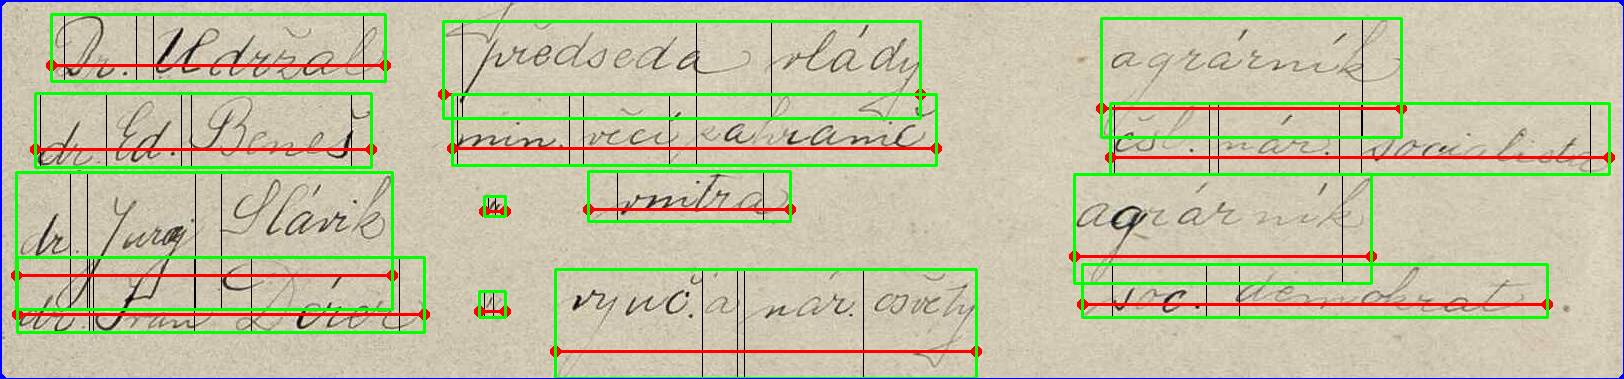 Dr. Udržal předseda vlády agrárník
dr. Ed. Beneš min. věcí zahranič čsl. nár. socialista
dr. Juraj Slávik " vnitra agrárník
dr. Ivan Dérer " vyuč. a nár. osvěty soc. demokrat.